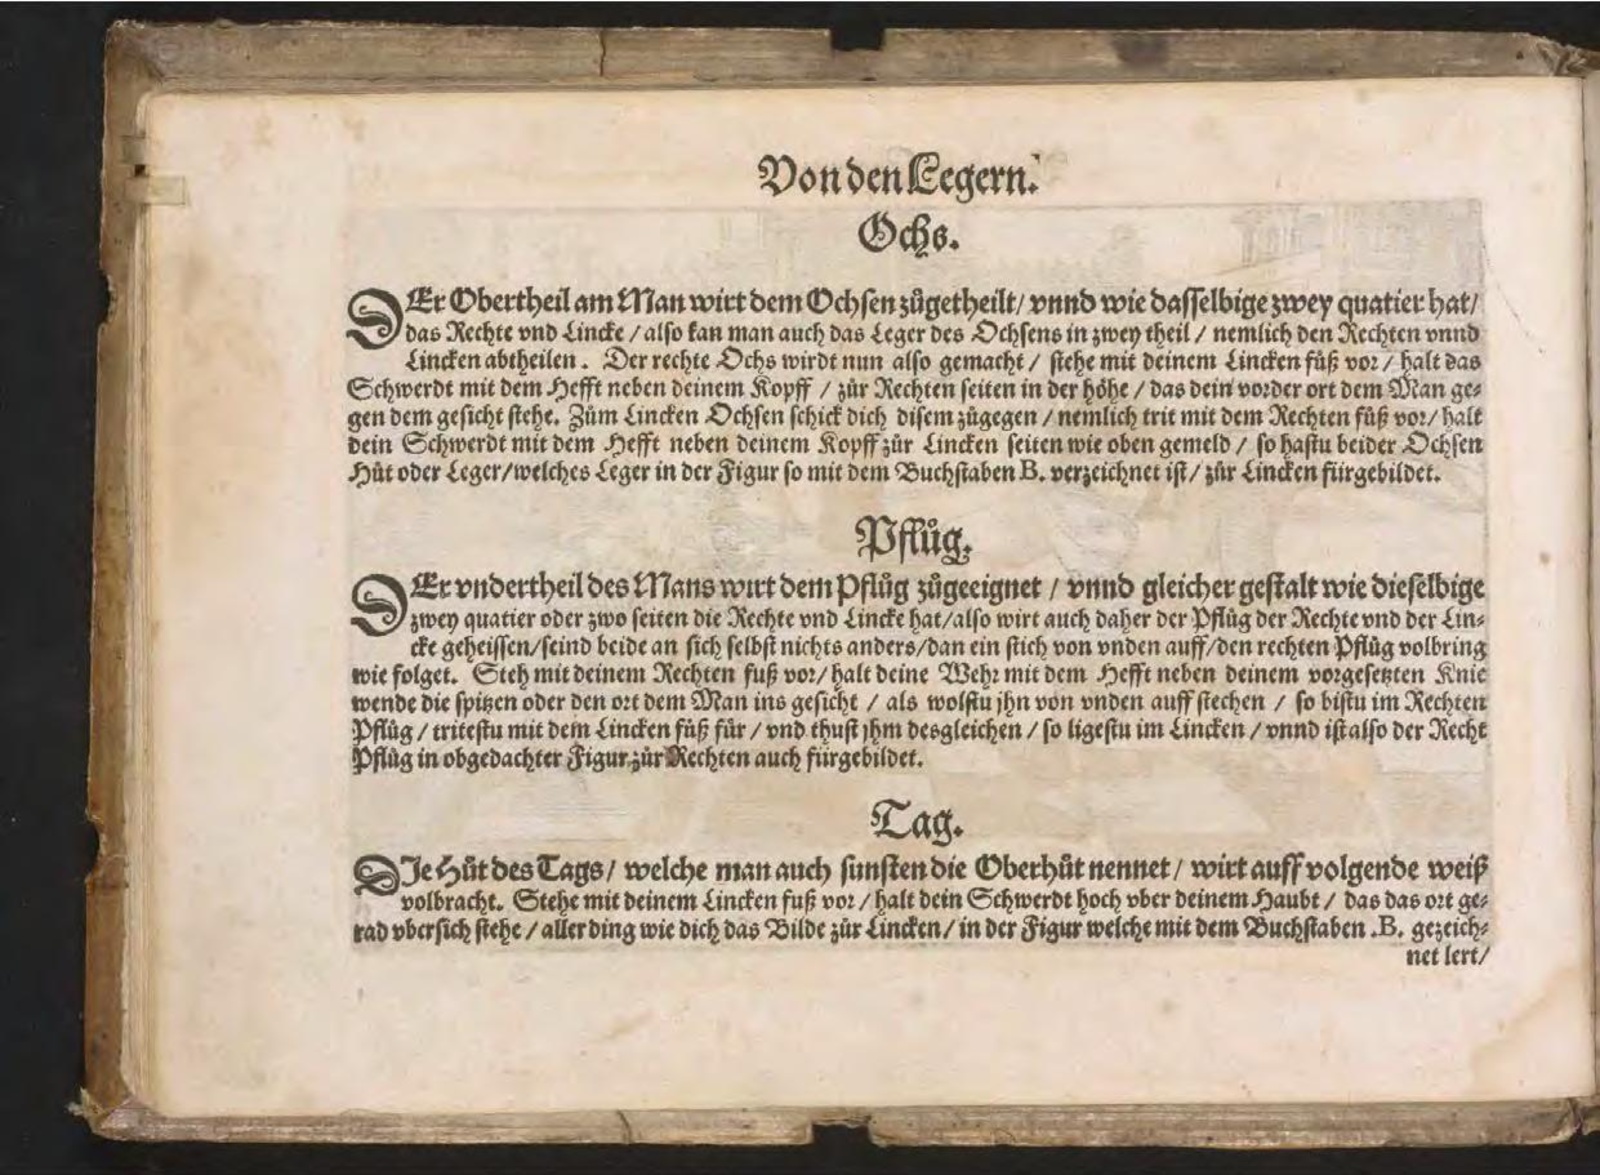 Von den Legern.
Ochs.
DEr Obertheil am Man wirt dem Ochsen zůgetheilt/ vnnd wie dasselbige zwey quatier hat/
das Rechte vnd Lincke / also kan man auch das Leger des Ochsens in zwey theil / nemlich den Rechten vnnd
Lincken abtheilen. Der rechte Ochs wirdt nun also gemacht / stehe mit deinem Lincken fůß vor / halt das
Schwerdt mit dem Hefft neben deinem Kopff / zůr Rechten seiten in der höhe / das dein vorder ort dem Man ge⸗
gen dem gesicht stehe. Zům Lincken Ochsen schick dich disem zůgegen / nemlich trit mit dem Rechten fůß vor / halt
dein Schwerdt mit dem Hefft neben deinem Kopff zůr Lincken seiten wie oben gemeld / so hastu beider Ochsen
Hůt oder Leger/welches Leger in der Figur so mit dem Buchstaben B. verzeichnet ist / zůr Lincken fürgebildet.
Pflůg.
DEr vndertheil des Mans wirt dem Pflůg zůgeeignet / vnnd gleicher gestalt wie dieselbige
zwey quatier oder zwo seiten die Rechte vnd Lincke hat/also wirt auch daher der Pflůg der Rechte vnd der Lin⸗
cke geheissen/seind beide an sich selbst nichts anders/dan ein stich von vnden auff/den rechten Pflůg volbring
wie folget. Steh mit deinem Rechten fuß vor/ halt deine Wehr mit dem Hefft neben deinem vorgesetzten Knie
wende die spitzen oder den ort dem Man ins gesicht / als wolstu jhn von vnden auff stechen / so bistu im Rechten
Pflůg / tritestu mit dem Lincken fůß für / vnd thust jhm desgleichen / so ligestu im Lincken / vnnd ist also der Recht
Pflůg in obgedachter Figur zůr Rechten auch fürgebildet.
Tag.
DIe Hůt des Tags/ welche man auch sunsten die Oberhůt nennet/ wirt auff volgende weiß
volbracht. Stehe mit deinem Lincken fuß vor / halt dein Schwerdt hoch vber deinem Haubt / das das ort ge⸗
rad vbersich stehe / allerding wie dich das Bilde zůr Lincken / in der Figur welche mit dem Buchstaben .B. gezeich⸗
net lert/